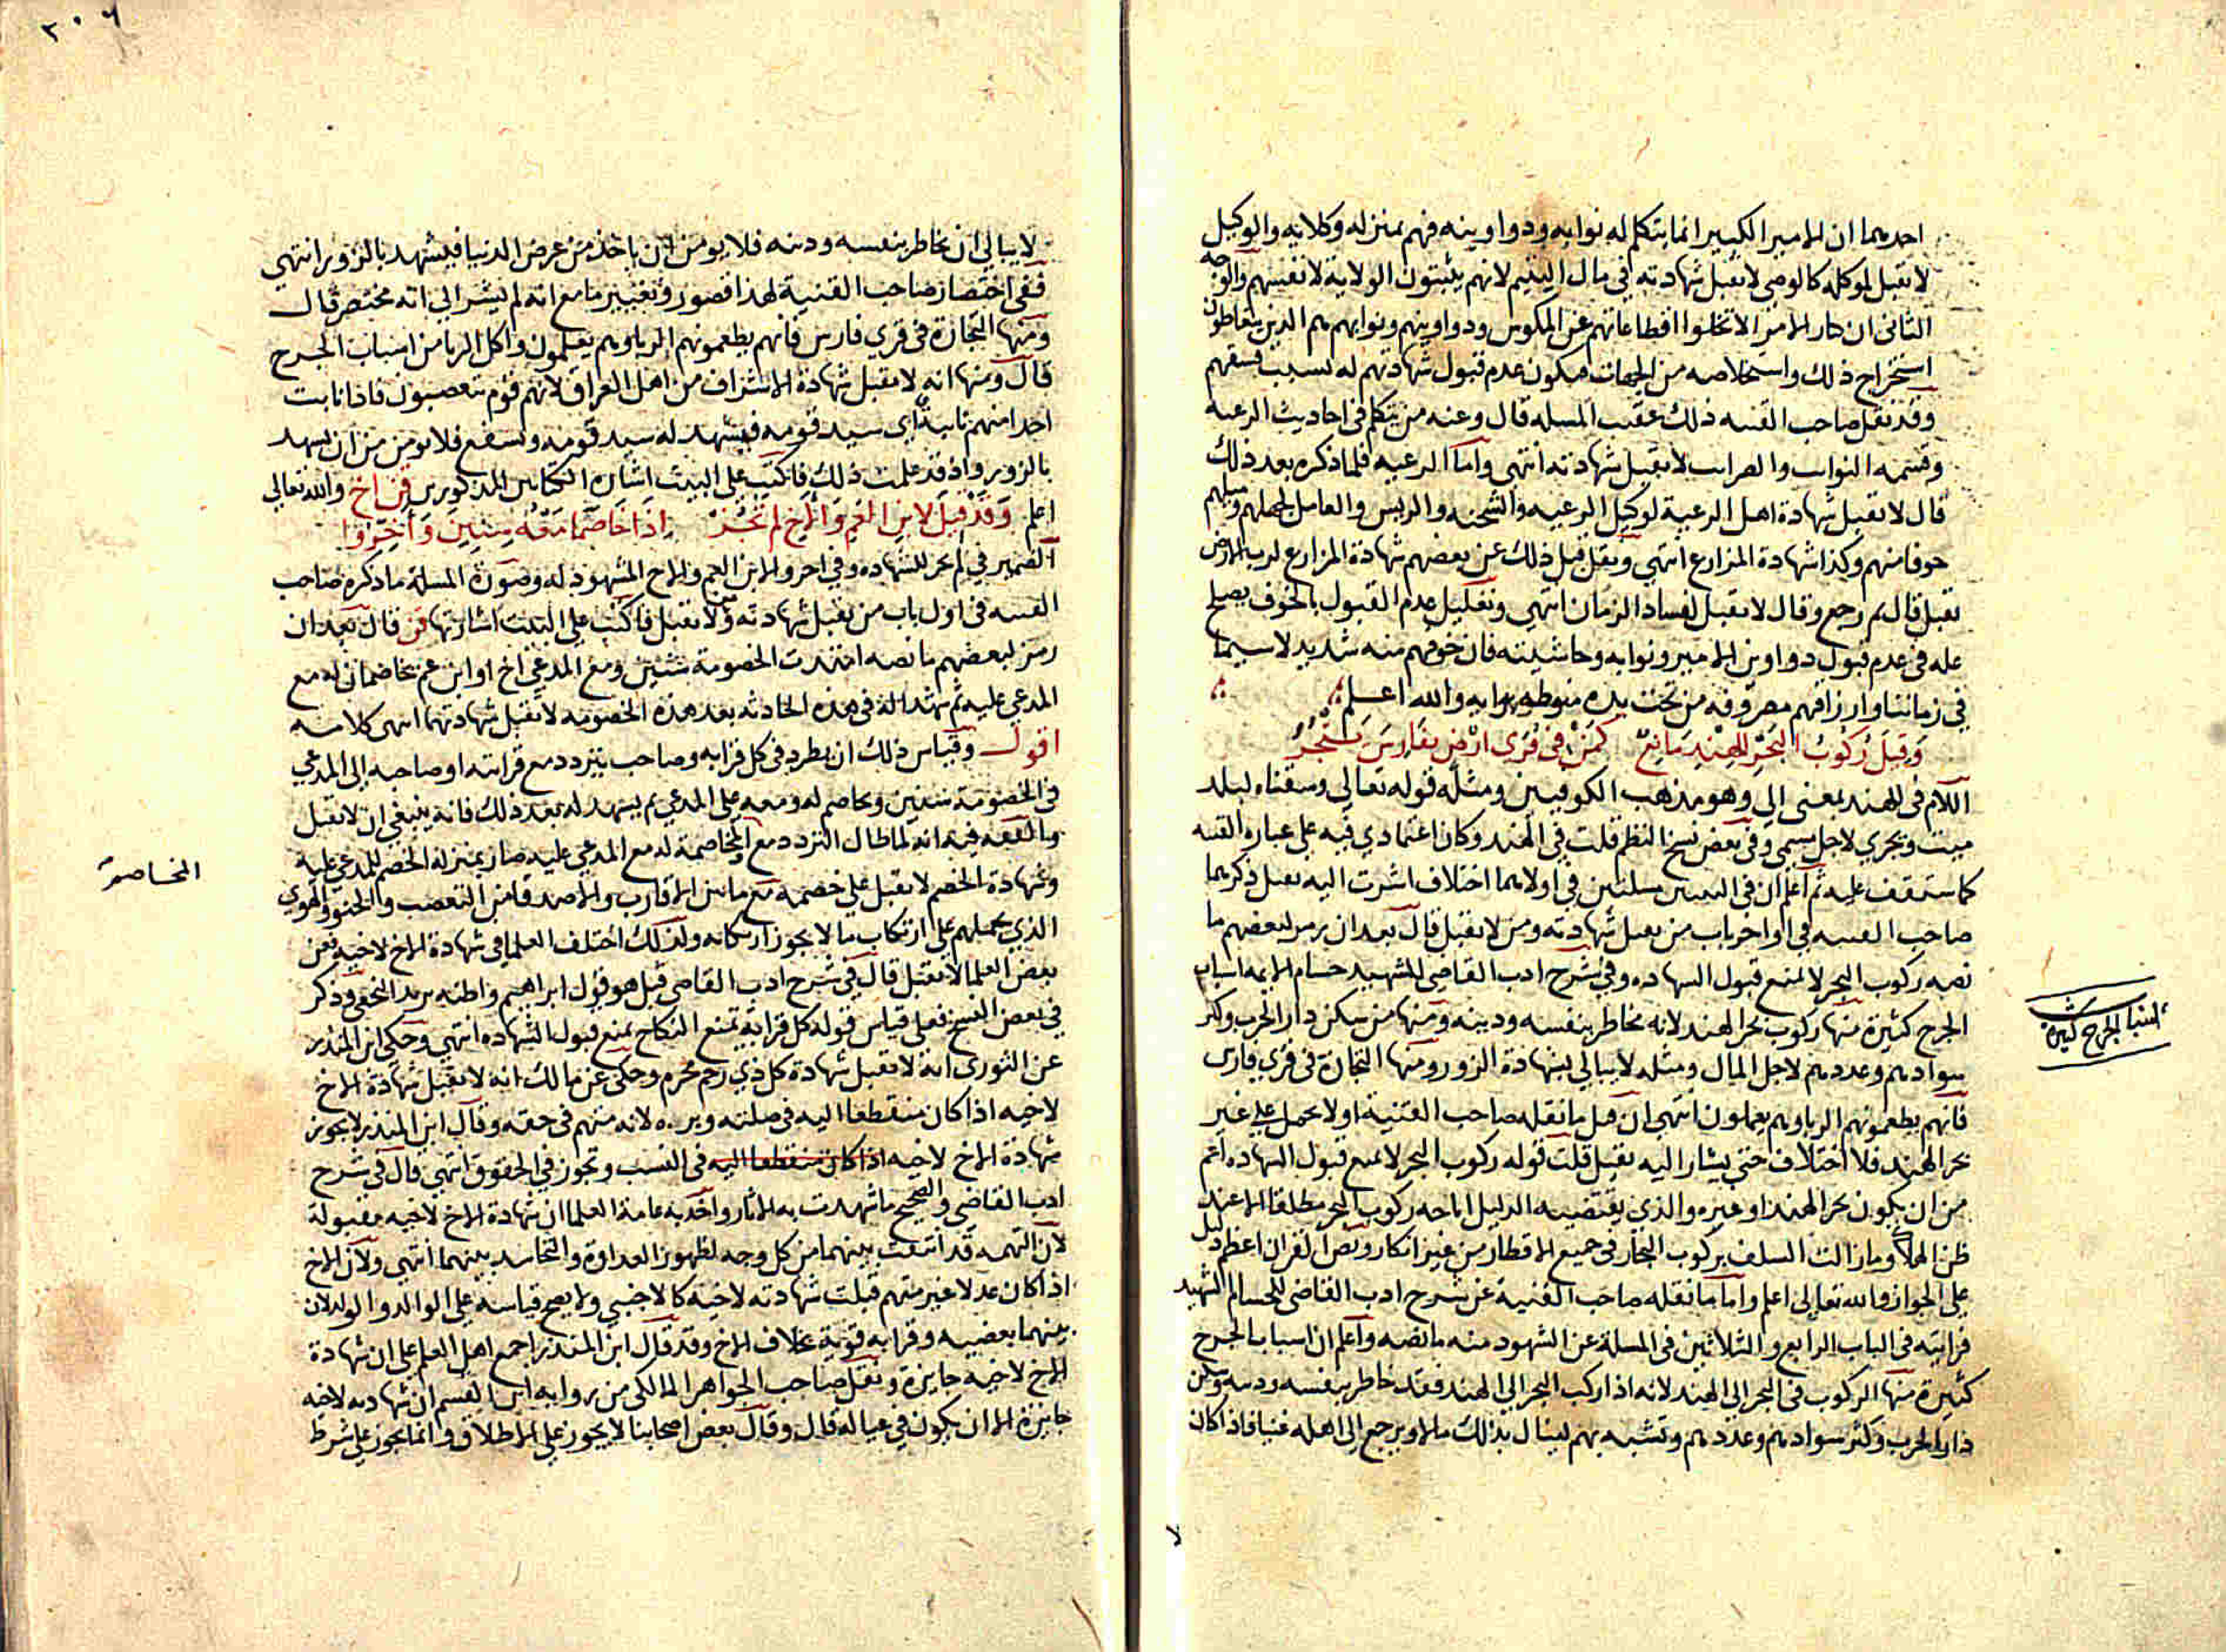 احدهما ان الامير الكبير انما يتكلم له نوابه ودواوينه فهم بمنزلة وكلايه والوكيل
لا تقبل لموكله كالوصي لا تقبل شهادته في مال اليتيم لانهم يثبتون الولاية لانفسهم والوجه
الثاني ان كبار الامرا لا تخلوا اقطاعاتهم عن المكوس ودواوينهم ونوابهم هم الذين يتعاطون
استخراج ذلك واستخلاصه من الجهات فيكون عدم قبول شهادتهم له بسبب فسقهم
وقد نقل صاحب القنيه ذلك عقب المسله قال وعنه من يتكلم في احاديث الرعيه
وقسمه النوايب والضرايب لا تقبل شهادته انتهى واما الرعيه فلما ذكره بعد ذلك
قال لا تقبل شهادة اهل الرعية لوكيل الرعيه والشحنه والريس والعامل لجهلهم وميلهم
خوفا منهم وكذا شهادة المزارع انتهي ونقل قبل ذلك عن بعضهم شهادة المزارع لرب الارض
تقبل قال ثم رجع وقال لا تقبل لفساد الزمان انتهي وتعليل عدم القبول بالخوف يصلح
عله في عدم قبول دواوين الامير ونوابه وحاشيته فان خوفهم منه شديد لا سيما
في زماننا وارزاقهم مصروفه من تحت يده منوطه بوابه والله اعلم
وَقِيلَ رُكُوبُ البَحْرِ لِلهِنْدِ مَانِعٌ كَمَنْ فِي قُرَى ارْضٍ بفَارِسَ يَتَّجِرُ
اللام في للهند بمعنى الي وهو مذهب الكوفيين ومثله قوله تعالي وسقناه لبلد
ميت ويجري لاجل مسمي وفي بعض نسخ النظم قلت في الهند وكان اعتمادي فيه علي عباره القنيه
كما ستقف عليه ثم اعلم ان في البيت مسلتين في اولاهما اختلاف اشرت اليه بقيل ذكرهما
صاحب القنيه في اواخر باب من تقبل شهادته ومن لا تقبل قال بعد ان رمز لبعضهم ما
نصه ركوب البحر لا يمنع قبول الشهاده وفي شرح ادب القاضي للشهيد حسام الايمه اسباب
الجرح كثيرة منها ركوب بحر الهند لانه مخاطر بنفسه ودينه ومنها من سكن دار الحرب وكثر
سوادهم وعددهم لاجل المال ومثله لا يبالي بشهادة الزور ومنها التجارة في قري فارس
فانهم يطعمونهم الربا وهم يعلمون انتهي ان قيل ما نقله صاحب القنية اولا يحمل علي غير
بحر الهند فلا اختلاف حتي يشار اليه بقيل قلت قوله ركوب البحر لا يمنع قبول الشهاده اعم
من ان يكون بحر الهند او غيره والذي يقتضيه الدليل اباحه ركوب البحر مطلقا الا عند
ظن الهلاك وما زالت السلف يركبون البحار في جميع الاقطار من غير انكار ونص القران اعظم دليل
علي الجواز والله تعالي اعلم واما ما نقله صاحب القنية عن شرح ادب القاضي للحسام الشهيد
فرايته في الباب الرابع والثلاثين في المسلة عن الشهود منه ما نصه واعلم ان اسباب الجرح
كثيرة منها الركوب في البحر الي الهند لانه اذا ركب البحر الي الهند فقد خاطر بنفسه ودينه وسكن
دار الحرب وكثر سوادهم وعددهم وتشبه بهم لينال بذلك مالا ويرجع الى اهله غنيا فاذا كان
اسباب الجرح كثيرة
٣٠٦
لا يبالي ان يخاطر بنفسه ودينه فلا يومن ان ياخذ من عرض الدنيا فيشهد بالزور انتهي
ففي اختصار صاحب القنية لهذا قصور وتغيير ما مع انه لم يشر الي انه مختصر قال
ومنها التجارة في قري فارس فانهم يطعمونهم الربا وهم يعلمون واكل الربا من اسباب الجرح
قال ومنها انه لا تقبل شهادة الاشراف من اهل العراق لانهم قوم يتعصبون فاذا نابت
احدا منهم نايبة اتى سيد قومه فيشهد له سيد قومه ويشفع فلا يومن من ان يشهد
بالزور واذ قد علمت ذلك فاكتب علي البيت اشاره الكتابين المذكورين قن اخ والله تعالي
اعلم وَقَدْ قِيلَ لابْنِ العَمِّ وَالاخِ لَمْ تَجُزْ اِذَا خَاصَمَا مَعْهُ سِنِينَ وَأُخِّرُوا
الضمير في لم تجز للشهاده وفي اخروا لابن العم والاخ المشهود له وصورة المسلة ما ذكره صاحب
القنيه في اول باب من تقبل شهادته ومن لا تقبل فاكتب علي البيت اشارتها قن قال بعد ان
رمز لبعضهم ما نصه امتدت الخصومة سنتين ومع المدعي اخ او ابن عم يخاصمان له مع
المدعي عليه ثم شهدا له في هذه الحادثه بعد هذه الخصومه لا تقبل شهادتهما انتهى كلامه
اقول وقياس ذلك ان يطرد في كل قرابه وصاحب يتردد مع قرابته او صاحبه الي المدعي
في الخصومة سنين ويخاصم له ومعه علي المدعي ثم يشهد له بعد ذلك فانه ينبغي ان لا تقبل
والفقه فيه انه لما طال التردد مع المخاصمة له مع المدعي عليه صار بمنزلة الخصم للمدعي عليه
وشهادة الخصم لا تقبل علي خصمه مع ما بين الاقارب والاصدقا من التعصب والحنو والهوي
الذي يحملهم علي ارتكاب ما لا يجوز ارتكابه ولذلك اختلف العلما في شهادة الاخ لاخيه فعن
بعض العلما لا تقبل قال في شرح ادب القاضي قيل هو قول ابراهيم واظنه يريد النخعي وذكر
في بعض النسخ فعلي قياس قوله كل قرابة تمنع النكاح تمنع قبول الشهاده انتهي وحكي ابن المنذر
عن الثوري انه لا تقبل شهادة كل ذي رحم محرم وحكى عن مالك انه لا تقبل شهادة الاخ
لاخيه اذا كان منقطعا اليه في صلته وبره لانه متهم في حقه وقال ابن المنذر لا يجوز
شهادة الاخ لاخيه اذا كان منقطعا اليه في النسب وتجوز في الحقوق انتهي قال في شرح
ادب القاضي والصحيح ما شهدت به الاثار واخذ به عامة العلما ان شهادة الاخ لاخيه مقبولة
لان التهمه قد انتفت بينهما من كل وجه لظهور العداوة والتحاسد بينهما انتهي ولان الاخ
اذا كان عدلا غير متهم قبلت شهادته لاخيه كالاجنبي ولا يصح قياسه علي الوالد والولد لان
بينهما بعضيه وقرابه قوية بخلاف الاخ وقد قال ابن المنذر اجمع اهل العلم علي ان شهادة
الاخ لاخيه جايزة ونقل صاحب الجواهر المالكي من روايه ابن القسم ان شهادته لاخيه
جايزة الا ان يكون في عياله قال وقال بعض اصحابنا لا يجوز علي الاطلاق وانما يجوز علي شرط
المخاصمة